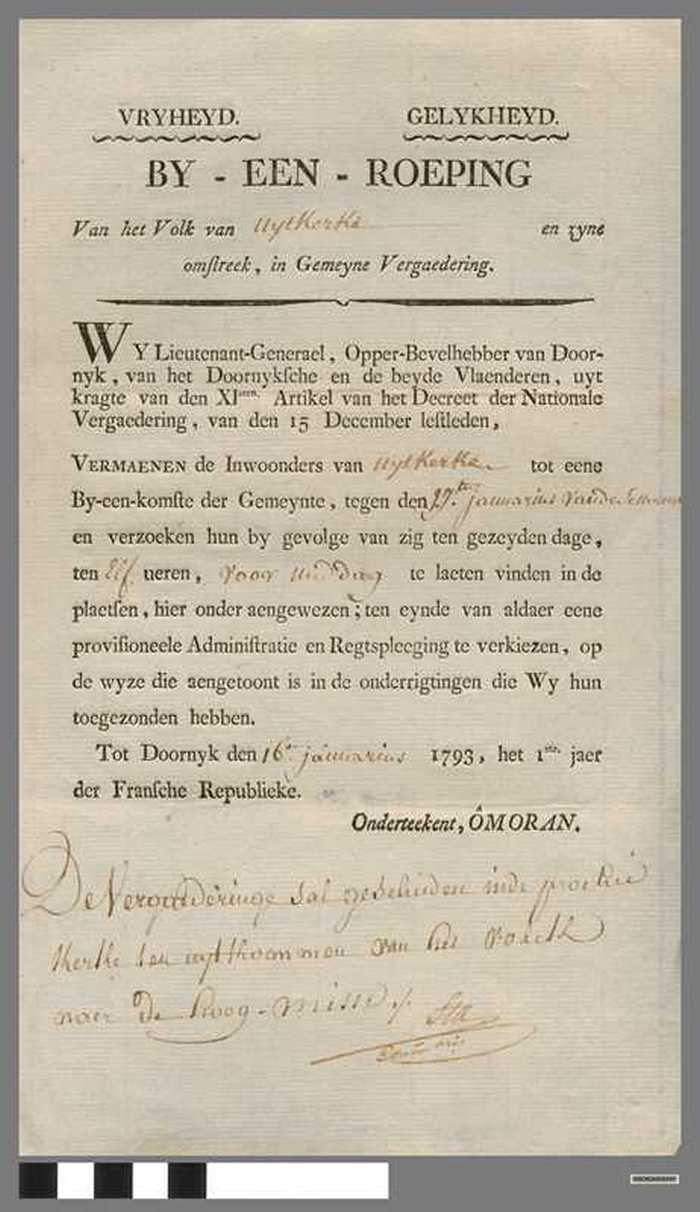 VRYHEYD. GELYKHEYD.
BY - EEN - ROEPING
Van het Volk van Uytkerke en zyne
omſtreek, in Gemeyne Vergaedering.
WY Lieutenant-Generael, Opper-Bevelhebber van Door-
nyk, van het Doornykſche en de beyde Vlaenderen, uyt
kragte van den XIsten. Artikel van het Decreet der Nationale
Vergaedering, van den 15 December leſtleden,
VERMAENEN de Inwoonders van Uytkerke tot eene
By-een-komſte der Gemeynte, tegen den 27.ten januarius van de
en verzoeken hun by gevolge van zig ten gezeyden dage,
ten Elf ueren, voor middag te laeten vinden in de
plaetſen, hier onder aengewezen; ten eynde van aldaer eene
proviſioneele Adminiſtratie en Regtspleeging te verkiezen, op
de wyze die aengetoont is in de onderrigtingen die Wy hun
toegezonden hebben.
Tot Doornyk den 16.e januarius 1793, het 1ste. jaer
der Franſche Republieke.
Onderteekent, ÔMORAN.
De Vergaderinge sal geschieden inde prochie
kerke ten uytkommen van het volck
naer de hoog-misse